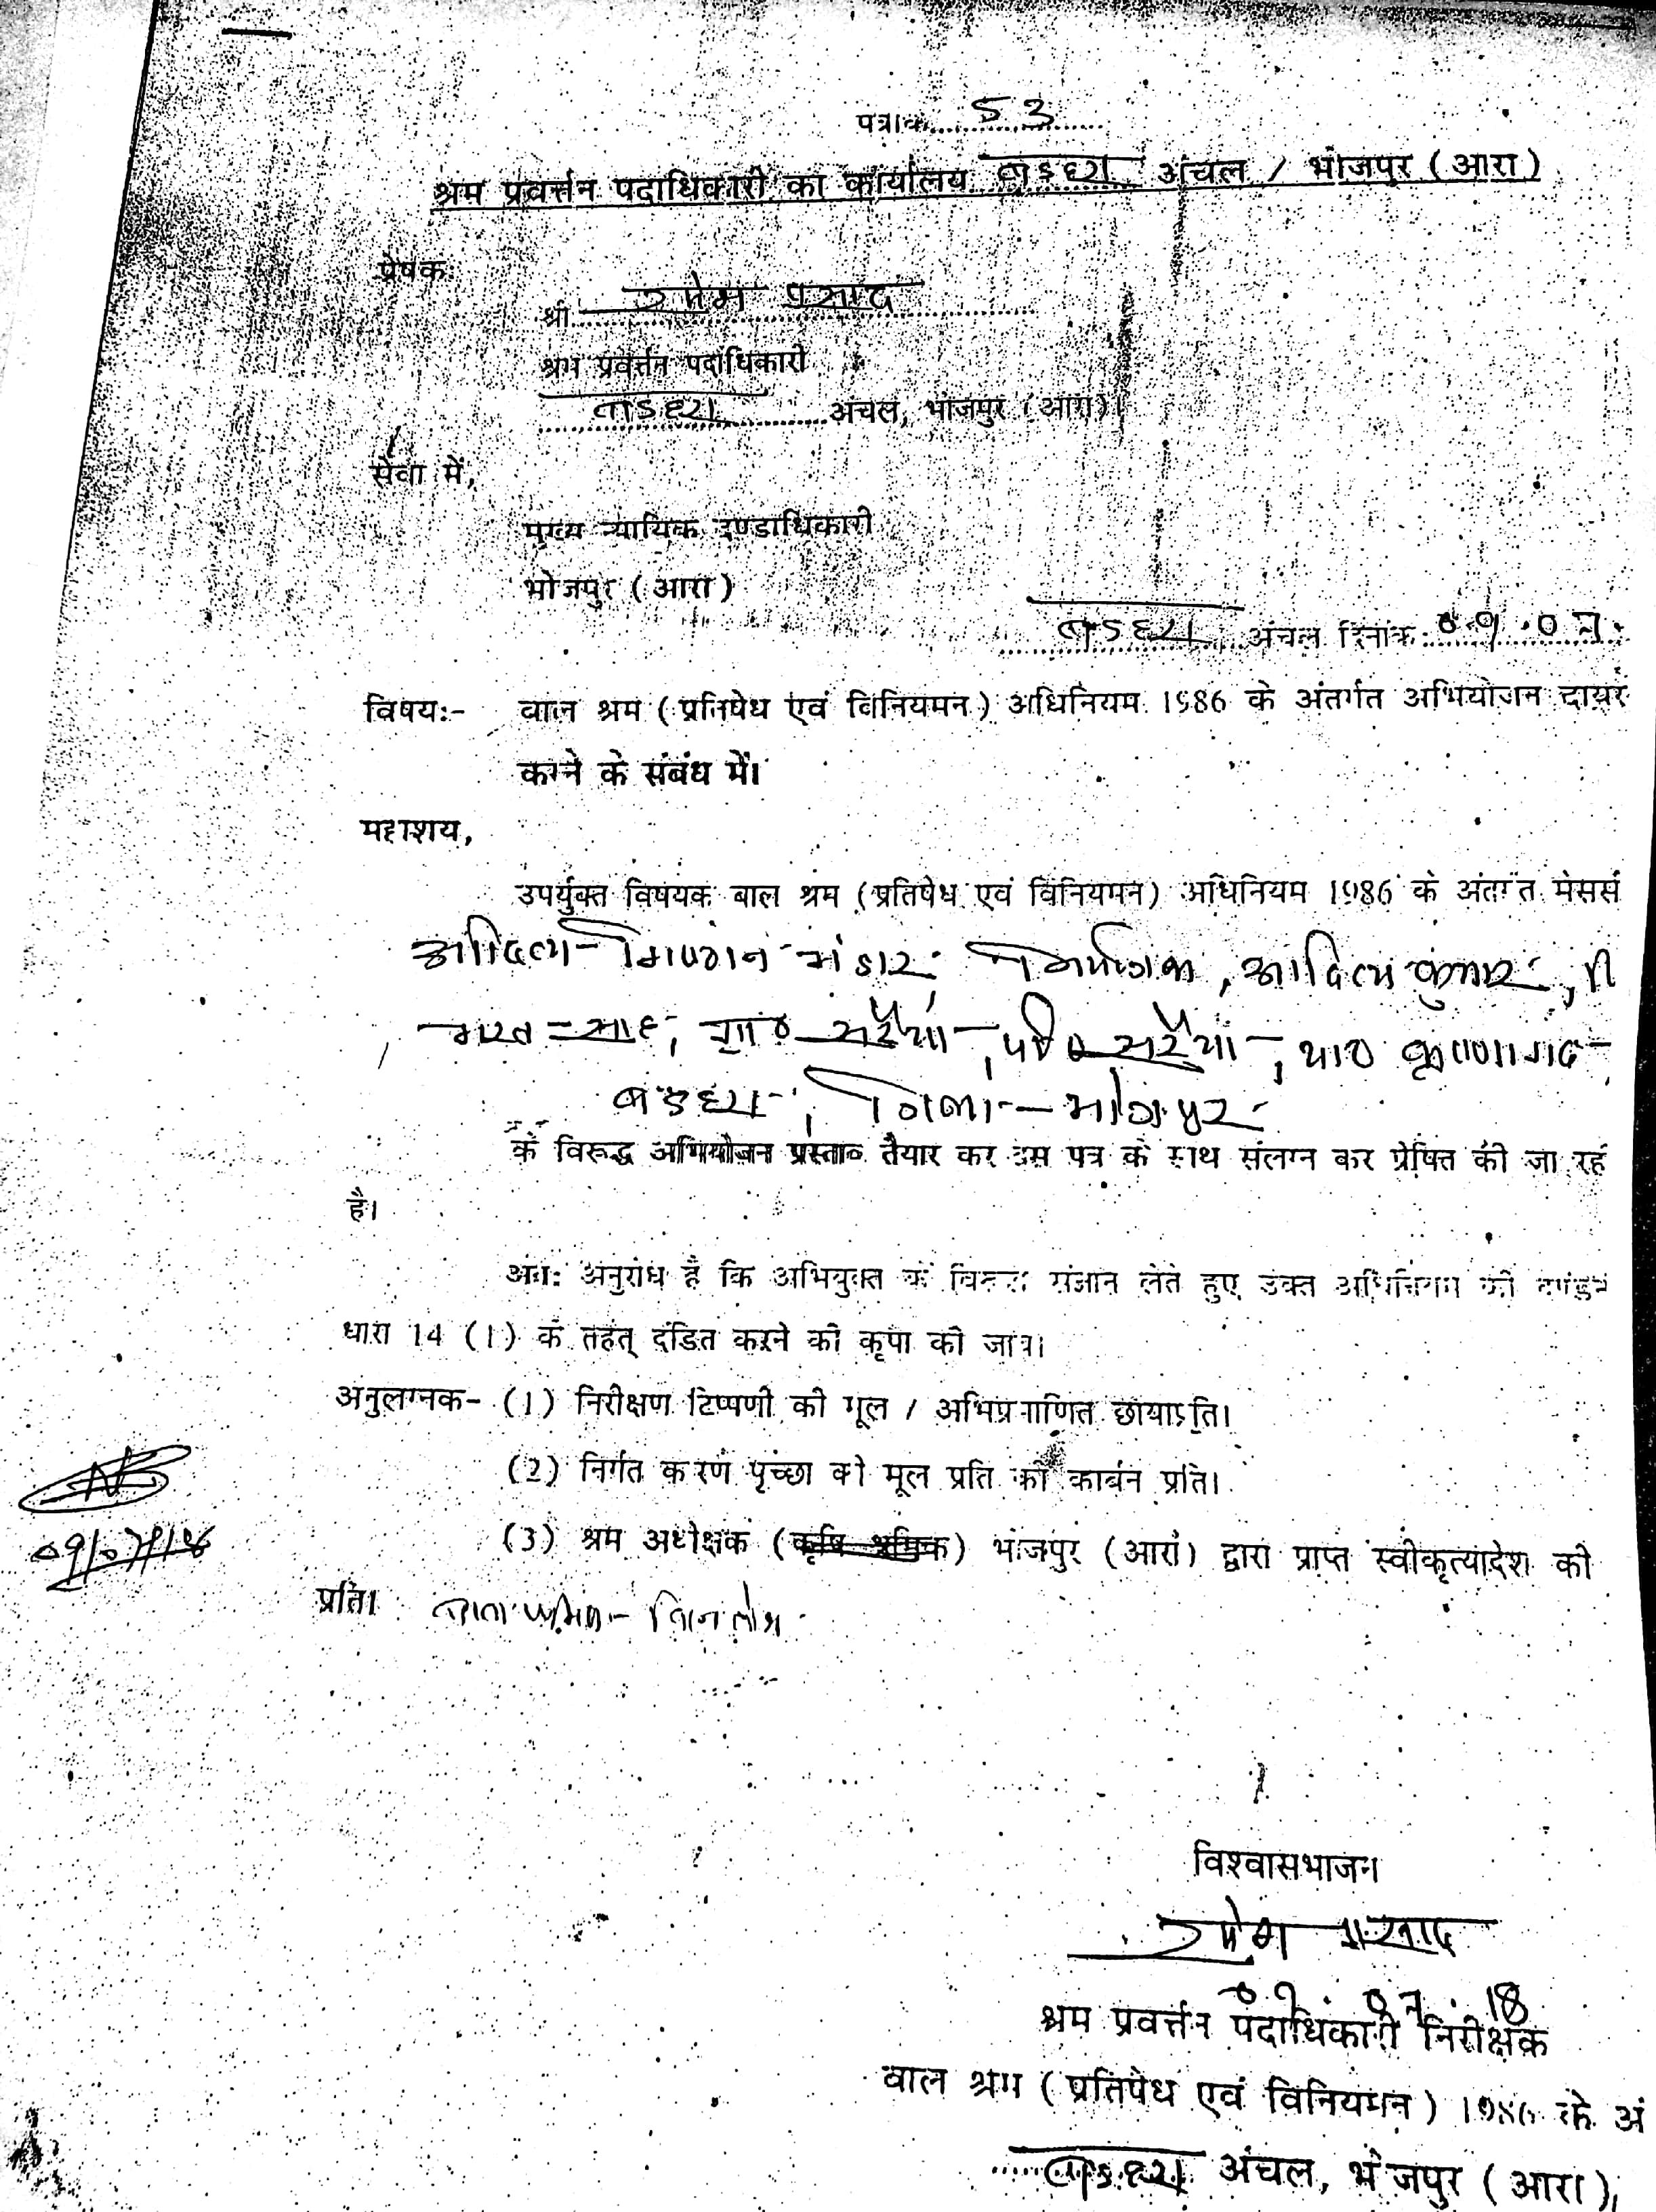 पत्रांक............53............
श्रम प्रवर्त्तन पदाधिकारी का कार्यालय बड़हरा अंचल / भोजपुर (आरा)
प्रेषक
श्री उमेश प्रसाद
श्रम प्रवर्त्तन पदाधिकारी
बड़हरा अंचल, भोजपुर (आरा)।
सेवा में,
मुख्य न्यायिक दण्डाधिकारी
भोजपुर (आरा)
बड़हरा अंचल दिनांक: 09.07.
विषयः- बाल श्रम (प्रतिषेध एवं विनियमन) अधिनियम 1986 के अंतर्गत अभियोजन दायर
करने के संबंध में।
महाशय,
उपर्युक्त विषयक बाल श्रम (प्रतिषेध एवं विनियमन) अधिनियम 1986 के अंतर्गत मेसर्स
आदित्य मिष्ठान भंडार, नियोजक, आदित्य कुमार, पि
भरत साह, ग्रा० सरैयाँ, पो० सरैयाँ, था० कृष्णागढ़
बड़हरा, जिला - भोजपुर
के विरूद्ध अभियोजन प्रस्ताव तैयार कर इस पत्र के साथ संलग्न कर प्रेषित की जा रह
है।
अतः अनुरोध है कि अभियुक्त के विरूद्ध संज्ञान लेते हुए उक्त अधिनियम की दण्डन
धारा 14 (1) के तहत् दंडित करने की कृपा की जाय।
अनुलग्नक- (1) निरीक्षण टिप्पणी की मूल / अभिप्रमाणित छायाप्रति।
(2) निर्गत करण पृच्छा की मूल प्रति की कार्बन प्रति।
09/07/18
(3) श्रम अधीक्षक (कृषि श्रमिक) भोजपुर (आरा) द्वारा प्राप्त स्वीकृत्यादेश की
प्रति।
विश्वासभाजन
उमेश प्रसाद
09.07.18
श्रम प्रवर्त्तन पदाधिकारी निरीक्षक
बाल श्रम (प्रतिषेध एवं विनियमन) 1986 के अं
बड़हरा अंचल, भोजपुर (आरा)।